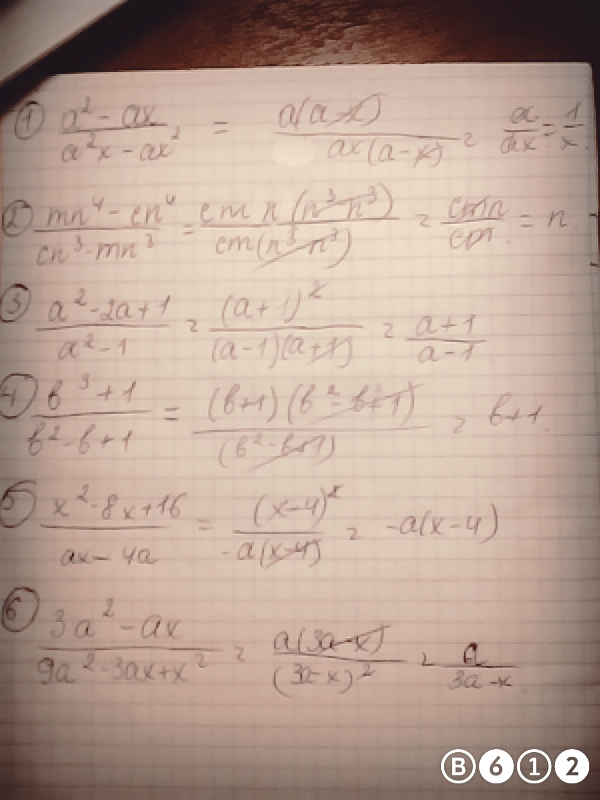 1 (a² - ax)/(a²x - ax²) = a(a-x)/ax(a-x) = a/ax = 1/x
2 (mn⁴ - cn⁴)/(cn³ - mn³) = cmn(n³ - n³)/cm(n³ - n³) = cmn/cm = n
3 (a² - 2a + 1)/(a² - 1) = (a+1)²/(a-1)(a+1) = (a+1)/(a-1)
4 (b³ + 1)/(b² - b + 1) = (b+1)(b² - b + 1)/(b² - b + 1) = b+1.
5 (x² - 8x + 16)/(ax - 4a) = (x-4)²/-a(x-4) = -a(x-4)
6 (3a² - ax)/(9a² - 3ax + x²) = a(3a-x)/(3a-x)² = a/(3a-x)
B612